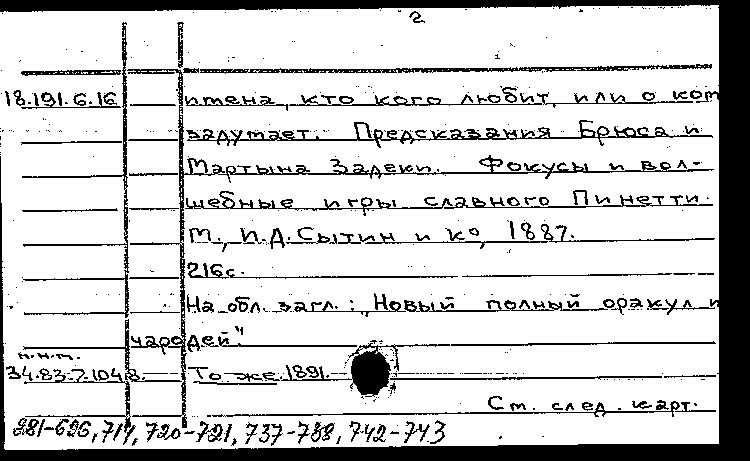 2
18.191.6.16 имена, кто кого любит, или о ком
задумает. Предсказания Брюса и
Мартына Задеки. Фокусы и вол-
шебные игры славного Пинетти.
М., И.Д.Сытин и Ко, 1887.
216с.
На обл. загл.: „Новый полный оракул и
чародей."
н.н.т.
34.83.7.1048. То же. 1891.
См. след. карт.
281-626, 717, 720-721, 737-738, 742-743